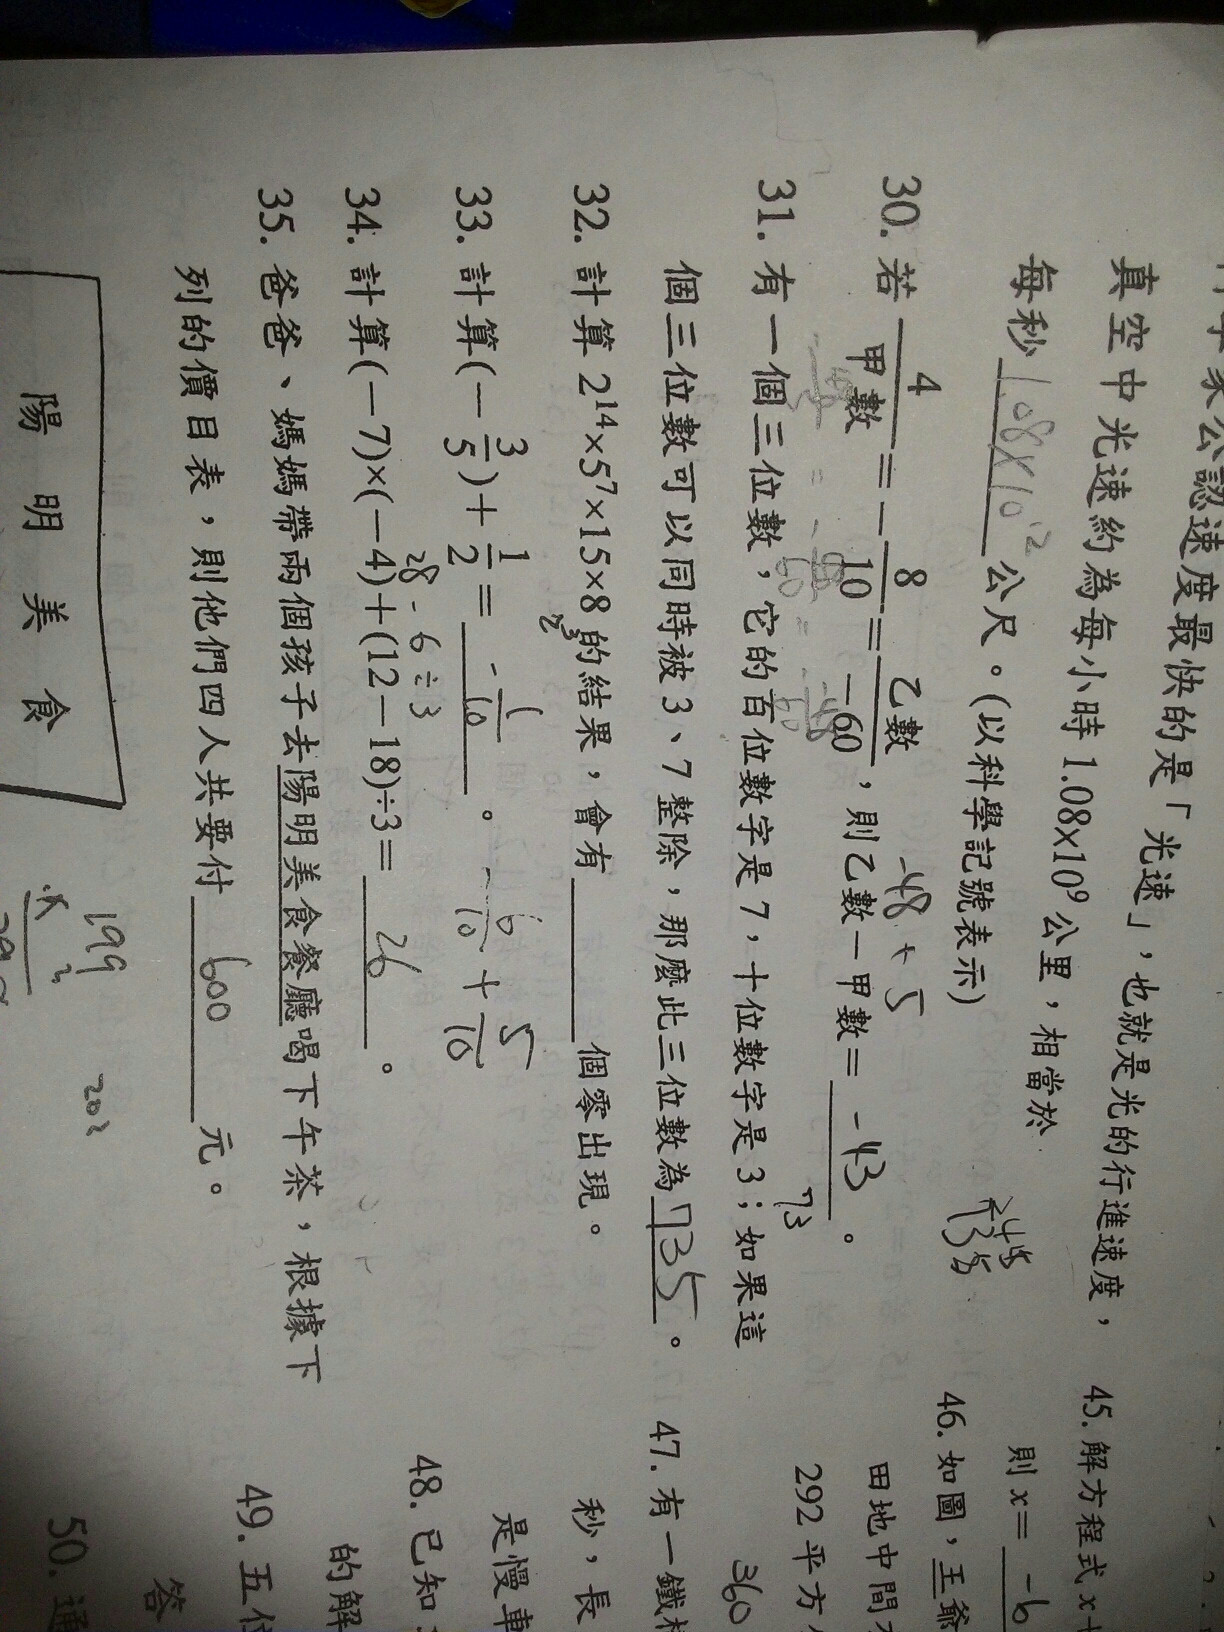 家公認速度最快的是「光速」，也就是光的行進速度，
真空中光速約為每小時 1.08×10⁹ 公里，相當於
每秒 1.08×10¹² 公尺。(以科學記號表示)
30. 若 4/甲數 = － 8/10 = 乙數/－60，則乙數－甲數＝ -43 。
-48 + 5
31. 有一個三位數，它的百位數字是 7，十位數字是 3；如果這
73
個三位數可以同時被 3、7 整除，那麼此三位數為 735 。
32. 計算 2¹⁴×5⁷×15×8 的結果，會有 個零出現。
2³
33. 計算(－3/5)＋1/2＝ -1/10 。
-6/10 + 5/10
34. 計算(－7)×(－4)＋(12－18)÷3＝ 26 。
28 - 6 ÷ 3
35. 爸爸、媽媽帶兩個孩子去陽明美食餐廳喝下午茶，根據下
列的價目表，則他們四人共要付 600 元。
陽 明 美 食
199
202
45. 解方程式 x+
則 x＝ -6
46. 如圖，王爺
田地中間
292 平方
360
47. 有一鐵
秒，長
是慢車
48. 已知
的解
49. 五位
答
50. 通